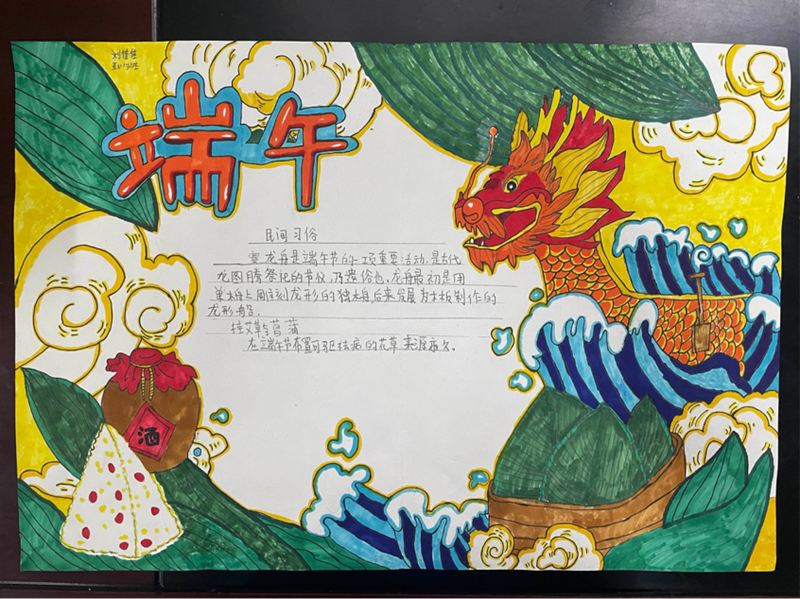 端午
民间习俗
赛龙舟是端午节的一项重要活动,是古代
龙图腾祭祀的节仪,乃遗俗也,龙舟最初是用
单木上刻龙形的独木舟后来发展为木板制作的
龙形舟
挂艾草与菖蒲
在端午节布置可驱祛病的花草,来源而久。
酒